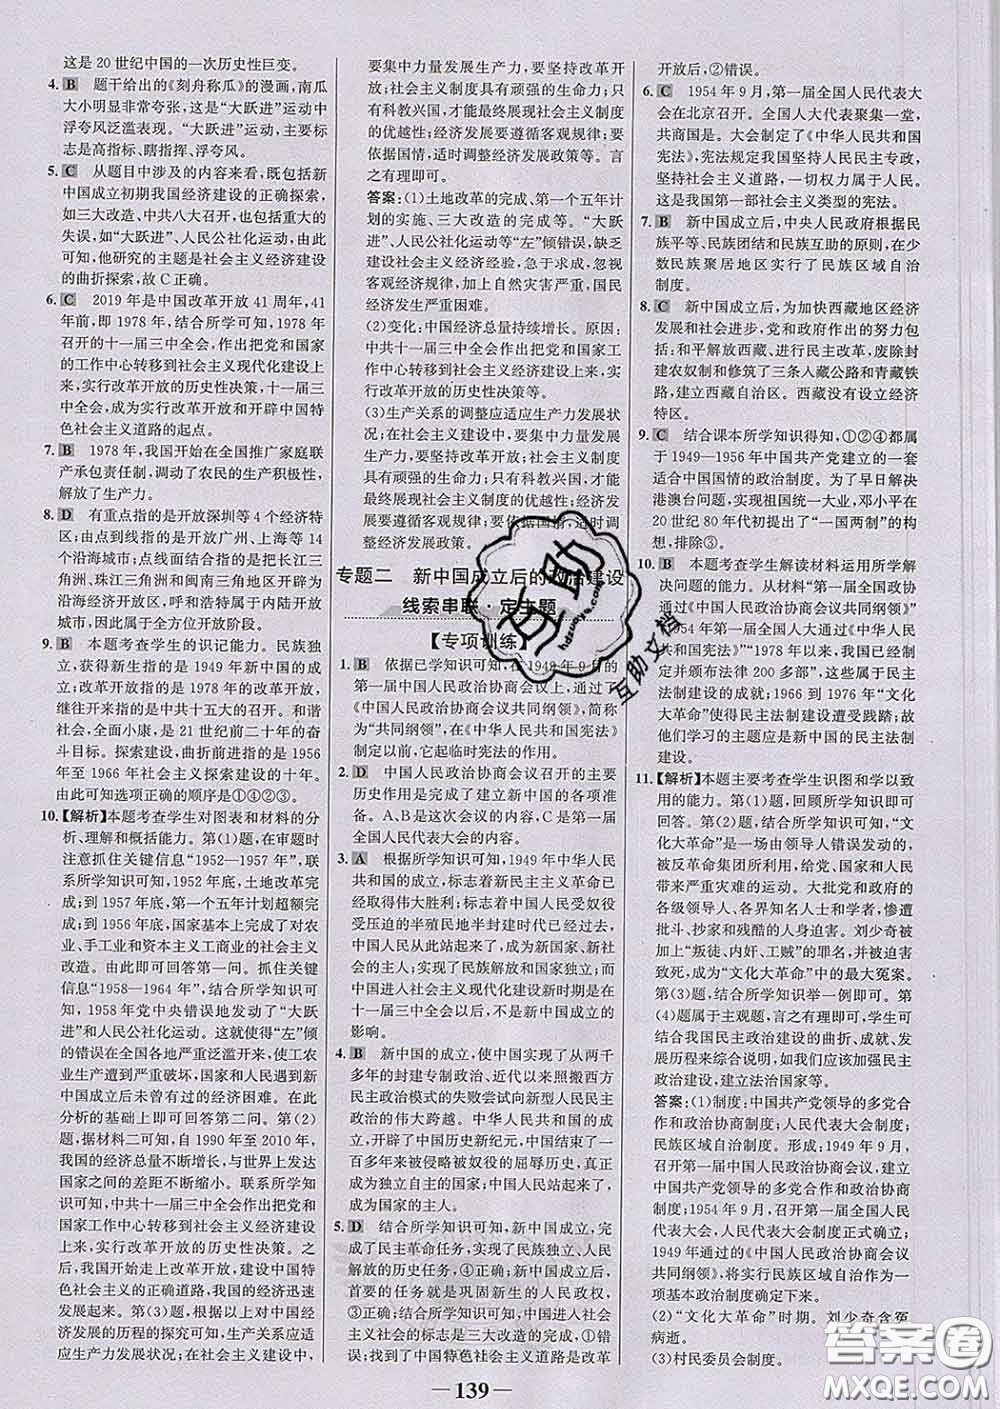 这是 20 世纪中国的一次历史性巨变。
4. B 题干给出的《刻舟称瓜》的漫画，南瓜
大小明显非常夸张，这是“大跃进”运动中
浮夸风泛滥表现。“大跃进”运动，主要标
志是高指标、瞎指挥、浮夸风。
5. C 从题目中涉及的内容来看，既包括新
中国成立初期我国经济建设的正确探索，
如三大改造、中共八大召开，也包括重大的
失误，如“大跃进”、人民公社化运动，由此
可知，他研究的主题是社会主义经济建设
的曲折探索，故 C 正确。
6. C 2019 年是中国改革开放 41 周年，41
年前，即 1978 年，结合所学可知，1978 年
召开的十一届三中全会，作出把党和国家
的工作中心转移到社会主义现代化建设上
来，实行改革开放的历史性决策，十一届三
中全会，成为实行改革开放和开辟中国特
色社会主义道路的起点。
7. B 1978 年，我国开始在全国推广家庭联
产承包责任制，调动了农民的生产积极性，
解放了生产力。
8. D 有重点指的是开放深圳等 4 个经济特
区；由点到线指的是开放广州、上海等 14
个沿海城市；点线面结合指的是长江三角
洲、珠江三角洲、环渤海和沿江内陆开放
城市，因此属于全方位开放阶段。
9. B 本题考查学生的识记能力。民族独
立，获得新生指的是 1949 年新中国的成
立；改革开放指的是 1978 年的改革开放，
继往开来指的是中共十五大的召开。和谐
社会，全面小康，是 21 世纪前二十年的奋
斗目标。探索建设，曲折前进指的是 1956
年至 1966 年社会主义探索建设的十年。
由此可知选项正确的顺序是①④②③。
10.【解析】本题考查学生对图表和材料的分
析、理解和概括能力。第（1）题，在审题时
注意抓住关键信息“1952—1957 年”，联
系所学知识可知，1952 年底，土地改革完
成；到 1957 年底，第一个五年计划超额完
成；到 1956 年底，国家基本上完成了对农
业、手工业和资本主义工商业的社会主义
改造。由此可回答第一问。抓住关键
信息“1958—1964 年”，结合所学知识可
知，1958 年党中央错误地发动了“大跃
进”和人民公社化运动。这就使得“左”倾
的错误在全国各地严重泛滥开来，使工农
业生产遭到严重破坏，国家和人民遇到新
中国成立后未曾有过的经济困难。在此
分析的基础上即可回答第二问。第（2）
题，据材料二可知，自 1990 年至 2010 年，
我国的经济总量不断增长，与世界上发达
国家之间的差距不断缩小。联系所学知
识可知，中共十一届三中全会作出把党和
国家工作中心转移到社会主义经济建设
上来，实行改革开放的历史性决策。新时
期，中国走上改革开放、建设中国特
色社会主义的正确道路，我国的经济迅速
发展起来。第（3）题，根据以上对中国经
济发展的历程的探究可知，生产关系应适
应生产力发展状况；在社会主义建设中，
要集中力量发展生产力，要坚持改革开
放；社会主义制度具有顽强的生命力；只
有科教兴国，才能展现社会主义制度
的优越性；经济发展要遵循客观规律；要
依据国情，适时调整经济发展政策等。言
之有理即可。
答案：（1）土地改革的完成、第一个五年计
划的实施、三大改造的完成等。“大跃
进”、人民公社化运动等“左”倾错误，缺乏
建设社会主义经济经验，急于求成，忽视
客观经济规律，加上自然灾害严重，国民
经济发生严重困难。
（2）变化：中国经济总量持续增长。原因：
中共十一届三中全会，作出把党和国家工
作中心转移到社会主义现代化建设上来，
实行改革开放的历史性决策等。
（3）生产关系的调整应适应生产力发展状
况；在社会主义建设中，要集中力量发展
生产力，要坚持改革开放；只有科教兴国，
才能展现社会主义制度的优越性；经济发
展要遵循客观规律；要依据国情，适时调
整经济发展政策。
专题二 新中国成立后的政治建设
线索串联·定主题
【专项训练】
1. B 依据已学知识可知，在 1949 年 9 月的
第一届中国人民政治协商会议上，通过了
《中国人民政治协商会议共同纲领》，简称
为“共同纲领”，在《中华人民共和国宪法》
制定以前，它起临时宪法的作用。
2. D 中国人民政治协商会议召开的主要
历史作用是完成了建立新中国的各项准
备。A、B 是本次会议的内容，C 是第一届
全国人民代表大会的内容。
3. A 根据所学知识可知，1949 年中华人民
共和国的成立，标志着新民主主义革命已
经取得伟大胜利；标志着中国人民受奴役
受压迫的半殖民地半封建时代已经过去，
中国人民从此站起来了，新国家、新社
会的主人；实现了民族解放和国家独立；而
中国进入社会主义现代化建设新时期是在
十一届三中全会以后，不是新中国成立的
影响。
4. B 新中国的成立，使中国实现了从两千
多年的封建专制政治、近代以来照搬西方
民主政治模式的失败尝试向新型人民民主
政治的伟大跨越。中华人民共和国的成
立，开辟了中国历史新纪元，中国结束了一
百多年来被侵略被奴役的屈辱历史，真正
成为独立自主的国家，中国人民站起来了，
成为国家的主人。
5. D 结合所学知识可知，新中国成立，完
成了民主革命任务，实现了民族独立、人民
解放的历史任务，④正确；新中国成立后，
首要的任务就是巩固新生的人民政权，
③正确；结合所学知识可知，中国进入社会
主义社会的标志是三大改造的完成，①错
误；找到了中国特色社会主义道路是改革
开放后，②错误。
6. C 1954 年 9 月，第一届全国人民代表大
会在北京召开。全国人大代表聚集一堂，
共商国是。大会制定了《中华人民共和国
宪法》，宪法规定我国坚持人民民主专政，
坚持社会主义道路，一切权力属于人民。
这是我国第一部社会主义类型的宪法。
7. B 新中国成立后，中央人民政府根据民
族平等、民族团结和民族互助的原则，在少
数民族聚居地区实行了民族区域自治
制度。
8. C 新中国成立后，为加快西藏地区经济
发展和社会进步，党和政府作出的努力包
括：和平解放西藏、进行民主改革，废除封
建农奴制和修筑了三条入藏公路和青藏铁
路，成立西藏自治区。西藏没有设立经济
特区。
9. C 结合课本所学知识得知，①②④都属
于 1949—1956 年中国共产党建立的一套
适合中国国情的政治制度。为了早日解决
港澳台问题，实现祖国统一大业，邓小平在
20 世纪 80 年代初提出了“一国两制”的构
想，排除③。
10. B 本题考查学生解读材料运用所学解
决问题的能力。从材料“1949 年政协通过
《中国人民政治协商会议共同纲领》”“1954
年第一届全国人大通过《中华人民共
和国宪法》”“1978 年以来，我国已经制定
并颁布法律 200 多部”，这些都属于民主
法制建设的成就；1966 至 1976 年“文化
大革命”使得民主法制建设遭受践踏；故
他们学习的主题应是新中国的民主法制
建设。
11.【解析】本题主要考查学生识图和学以致
用的能力。第（1）题，回顾所学知识即可
回答。第（2）题，结合所学知识可知，“文化
大革命”是一场由领导人错误发动的，
被反革命集团所利用，给党、国家和人民
带来严重灾难的运动。大批党和政府的
各级领导人，各界知名人士和群众，惨遭
批斗、抄家和残酷的人身迫害。刘少奇
被扣上“叛徒、内奸、工贼”的罪名，并被迫害
致死，成为“文化大革命”中的最大冤案。
第（3）题，结合所学知识举一例即可。第
（4）题属于主观题，言之有理即可，学生可
结合我国民主政治建设的曲折、成就、
发展历程来综合回答，如我们应该加强民主
政治建设，建立法治国家等。
答案：（1）制度：中国共产党领导的多党合
作和政治协商制度；人民代表大会制度；
民族区域自治制度。形成：1949 年 9 月，
召开第一届中国人民政治协商会议，建立
中国共产党领导的多党合作和政治协
商制度；1954 年 9 月，召开第一届全国人民
代表大会，人民代表大会制度正式确立；
1949 年通过的《中国人民政治协商会议
共同纲领》，将实行民族区域自治作为一
项基本政治制度确定下来。
（2）“文化大革命”时期。刘少奇含冤
病逝。
（3）村民委员会制度。
互助
hdzuoye.com
互助文档
答案圈
MXQE.COM
— 139 —